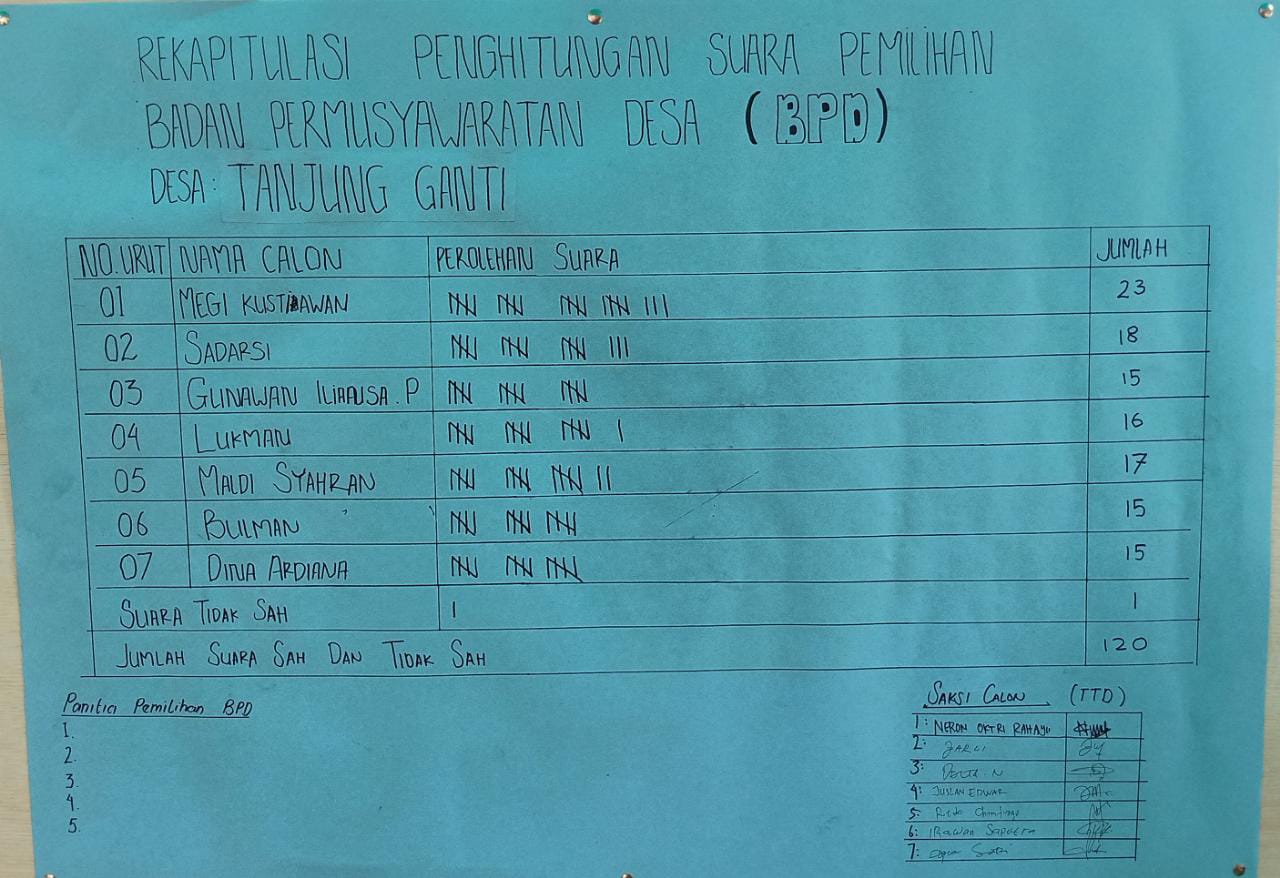 REKAPITULASI PENGHITUNGAN SUARA PEMILIHAN
BADAN PERMUSYAWARATAN DESA (BPD)
DESA: TANJUNG GANTI
NO.URUT NAMA CALON PEROLEHAN SUARA JUMLAH
01 MEGI KUSTIAWAN 23
02 SADARSI 18
03 GUNAWAN P 15
04 LUKMAN 16
05 MALDI SYAHRAN 17
06 BULMAN 15
07 DINA ARDIANA 15
SUARA TIDAK SAH 1
JUMLAH SUARA SAH DAN TIDAK SAH 120
Panitia Pemilihan BPD
1.
2.
3.
4.
5.
SAKSI CALON (TTD)
1: NERON OKTRI RAHAYU
2: JARLI
3:
4: JUSLAN EDWAR
5:
6: IRAWAN SAPUTRA
7: